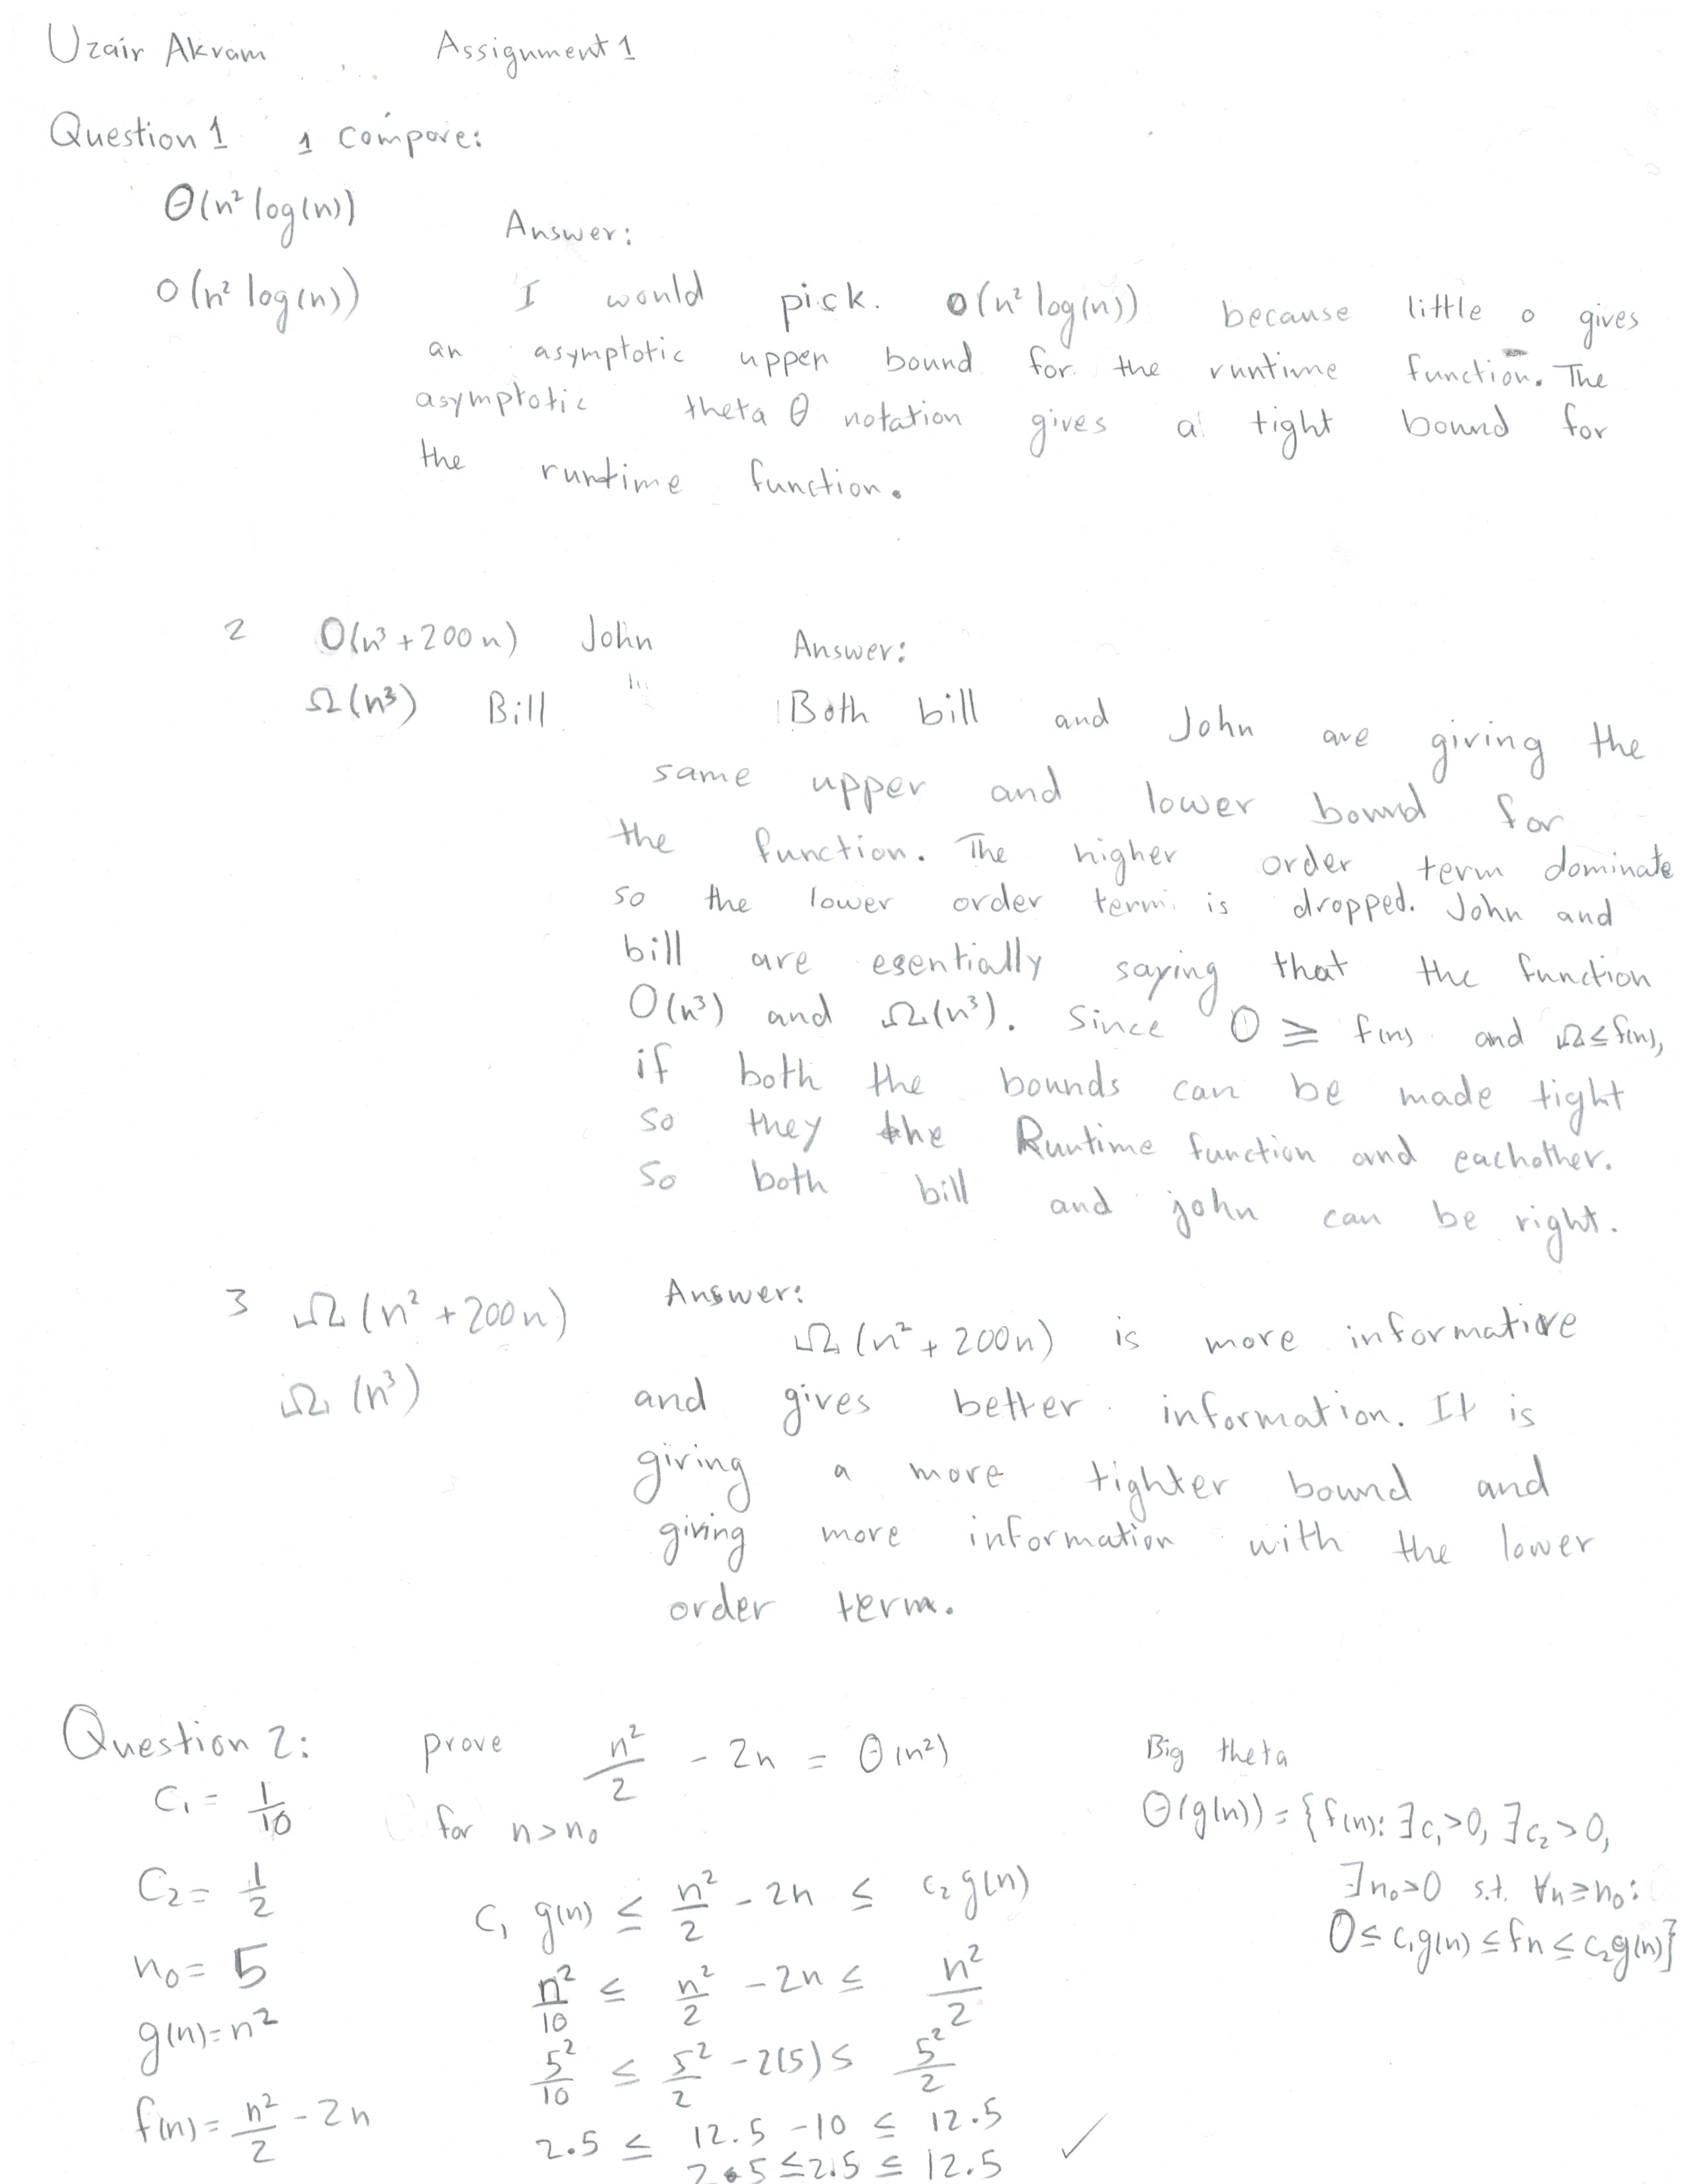 Uzair Akram Assignment 1
Question 1 1 compare:
Θ(n² log(n))
Answer:
o(n² log(n)) I would pick. o(n² log(n)) because little o gives
an asymptotic upper bound for the runtime function. The
asymptotic theta θ notation gives a tight bound for
the runtime function.
2 O(n³ + 200n) John Answer:
Ω(n³) Bill Both bill and John are giving the
same upper and lower bound for
the function. The higher order term dominate
so the lower order term is dropped. John and
bill are esentially saying that the function
O(n³) and Ω(n³). Since O ≥ f(n) and Ω ≤ f(n),
if both the bounds can be made tight
so they the Runtime function and eachother.
So both bill and john can be right.
3 Ω(n² + 200n) Answer:
Ω(n² + 200n) is more informative
Ω(n³) and gives better information. It is
giving a more tighter bound and
giving more information with the lower
order term.
Question 2: prove n²/2 - 2n = Θ(n²) Big theta
C₁ = 1/10 for n > n₀ Θ(g(n)) = {f(n): ∃c₁>0, ∃c₂>0,
C₂ = 1/2 C₁ g(n) ≤ n²/2 - 2n ≤ c₂ g(n) ∃n₀>0 s.t. ∀n≥n₀:
n₀ = 5 n²/10 ≤ n²/2 - 2n ≤ n²/2 0 ≤ c₁g(n) ≤ fn ≤ c₂g(n)}
g(n) = n² 5²/10 ≤ 5²/2 - 2(5) ≤ 5²/2
f(n) = n²/2 - 2n 2.5 ≤ 12.5 - 10 ≤ 12.5 ✓
2.5 ≤ 2.5 ≤ 12.5